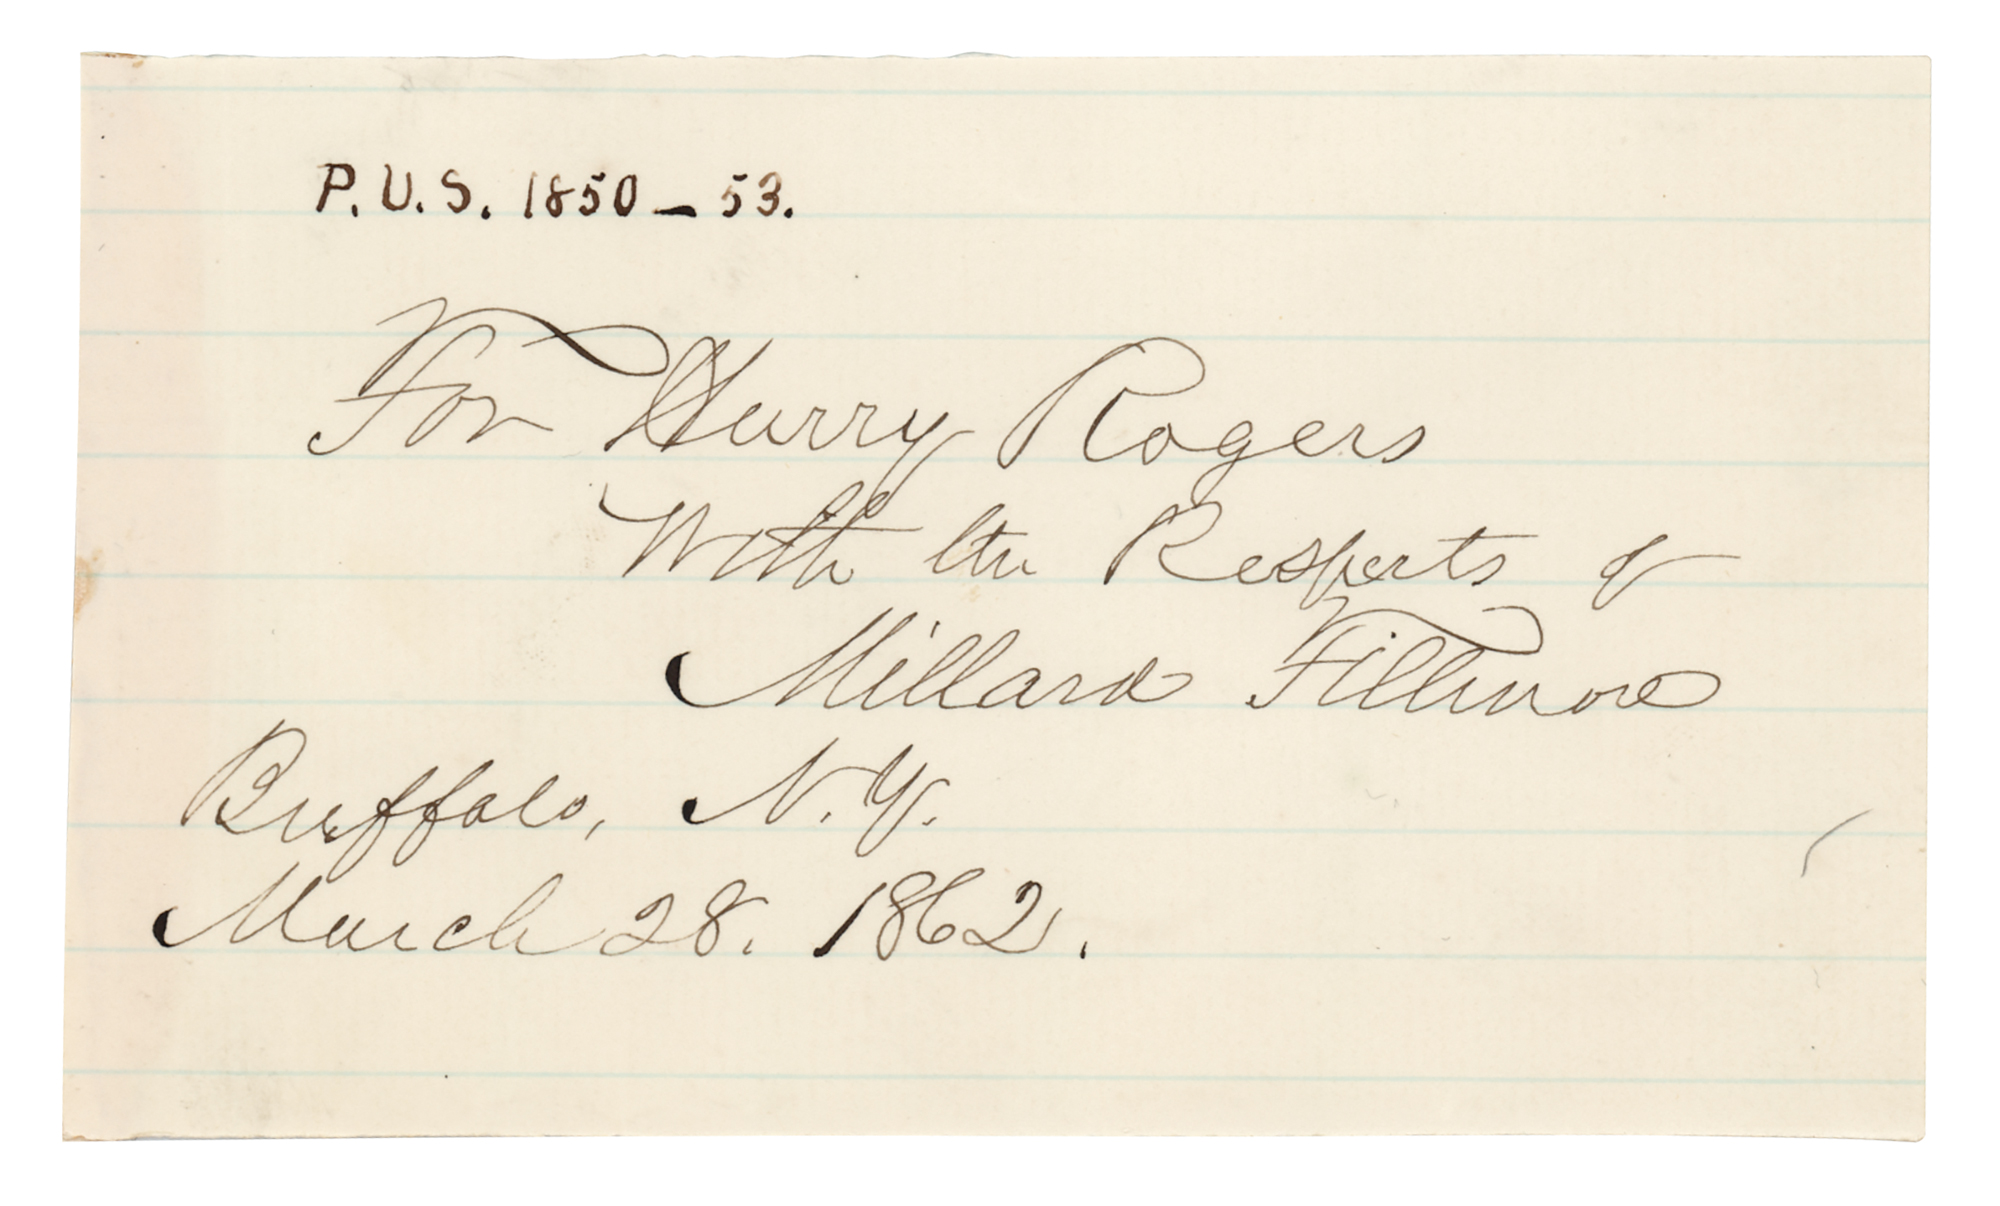 P.U.S. 1850 – 53.
For Harry Rogers
With the Respects of
Millard Fillmore
Buffalo, N.Y.
March 28. 1862.